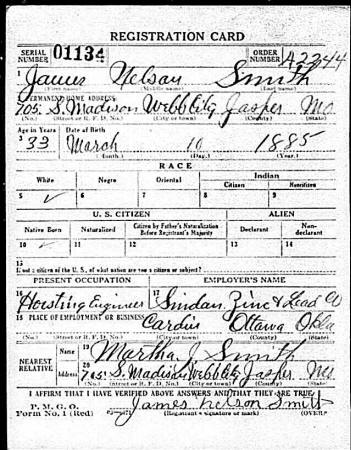 REGISTRATION CARD
SERIAL NUMBER 01134 ORDER NUMBER A2244
1 James Nelson Smith
(First name) (Middle name) (Last name)
2 PERMANENT HOME ADDRESS:
705 S. Madison Webb City Jasper Mo
(No.) (Street or R. F. D. No.) (City or town) (County) (State)
Age in Years Date of Birth
3 33 4 March 10 1885
(Month.) (Day.) (Year.)
RACE
White Negro Oriental Indian
Citizen Noncitizen
5 ✓ 6 7 8 9
U. S. CITIZEN ALIEN
Native Born Naturalized Citizen by Father's Naturalization Before Registrant's Majority Declarant Non-declarant
10 ✓ 11 12 13 14
15
If not a citizen of the U. S., of what nation are you a citizen or subject?
PRESENT OCCUPATION EMPLOYER'S NAME
16 Hoisting Engineer 17 Zinc & Lead Co
18 PLACE OF EMPLOYMENT OR BUSINESS:
Cardin Ottawa Okla
(No.) (Street or R. F. D. No.) (City or town) (County) (State)
NEAREST RELATIVE Name 19 Martha J. Smith
Address 20 705 S. Madison Webb City Jasper Mo
(No.) (Street or R. F. D. No.) (City or town) (County) (State)
I AFFIRM THAT I HAVE VERIFIED ABOVE ANSWERS AND THAT THEY ARE TRUE
P. M. G. O.
Form No. 1 (Red) James Nelson Smith
(Registrant's signature or mark) (OVER)